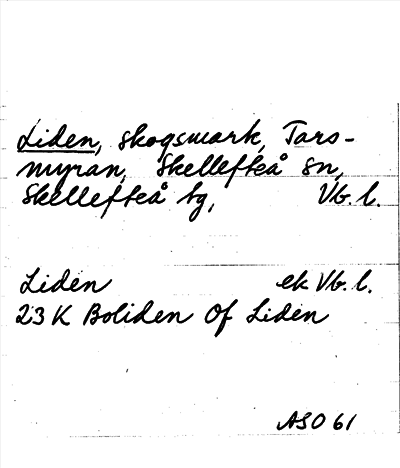 Liden, skogsmark, Tars-
myran, Skellefteå sn,
Skellefteå tg, Vb. l.
Liden ek Vb. l.
23 K Boliden Of Liden
ASO 61